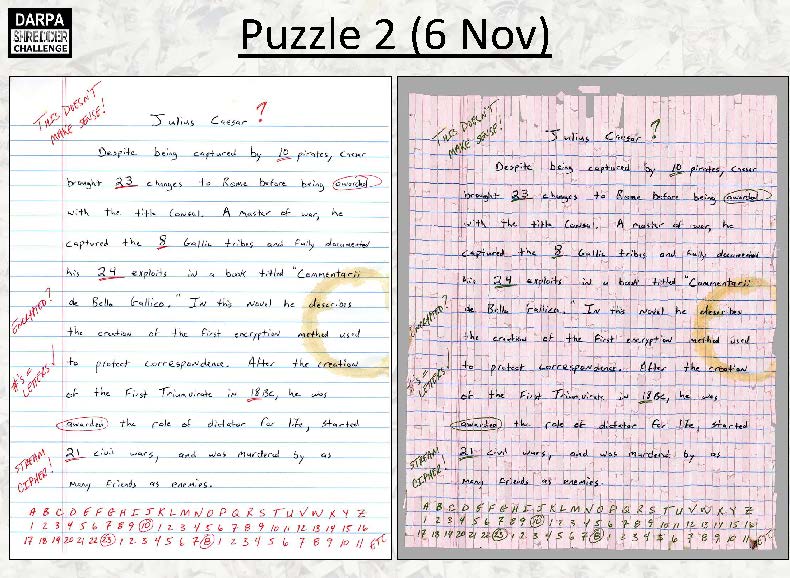 DARPA
SHREDDER
CHALLENGE
Puzzle 2 (6 Nov)
THIS DOESN'T
MAKE SENSE!
Julius Caesar ?
Despite being captured by 10 pirates, Caesar
brought 23 changes to Rome before being awarded
with the title Consul. A master of war, he
captured the 8 Gallic tribes and fully documented
his 24 exploits in a book titled "Commentarii
de Bello Gallico." In this novel he describes
ENCRYPTED?
the creation of the first encryption method used
to protect correspondence. After the creation
#'s =
LETTERS!
of the First Triumvirate in 18BC, he was
awarded the role of dictator for life, started
21 civil wars, and was murdered by as
STREAM
CIPHER!
many friends as enemies.
A B C D E F G H I J K L M N O P Q R S T U V W X Y Z
1 2 3 4 5 6 7 8 9 10 1 2 3 4 5 6 7 8 9 10 11 12 13 14 15 16
17 18 19 20 21 22 23 1 2 3 4 5 6 7 8 1 2 3 4 5 6 7 8 9 10 11 ETC
THIS DOESN'T
MAKE SENSE!
Julius Caesar ?
Despite being captured by 10 pirates, Caesar
brought 23 changes to Rome before being awarded
with the title Consul. A master of war, he
captured the 8 Gallic tribes and fully documented
his 24 exploits in a book titled "Commentarii
de Bello Gallico." In this novel he describes
ENCRYPTED?
the creation of the first encryption method used
to protect correspondence. After the creation
#'s =
LETTERS!
of the First Triumvirate in 18BC, he was
awarded the role of dictator for life, started
21 civil wars, and was murdered by as
STREAM
CIPHER!
many friends as enemies.
A B C D E F G H I J K L M N O P Q R S T U V W X Y Z
1 2 3 4 5 6 7 8 9 10 1 2 3 4 5 6 7 8 9 10 11 12 13 14 15 16
17 18 19 20 21 22 23 1 2 3 4 5 6 7 8 1 2 3 4 5 6 7 8 9 10 11 ETC